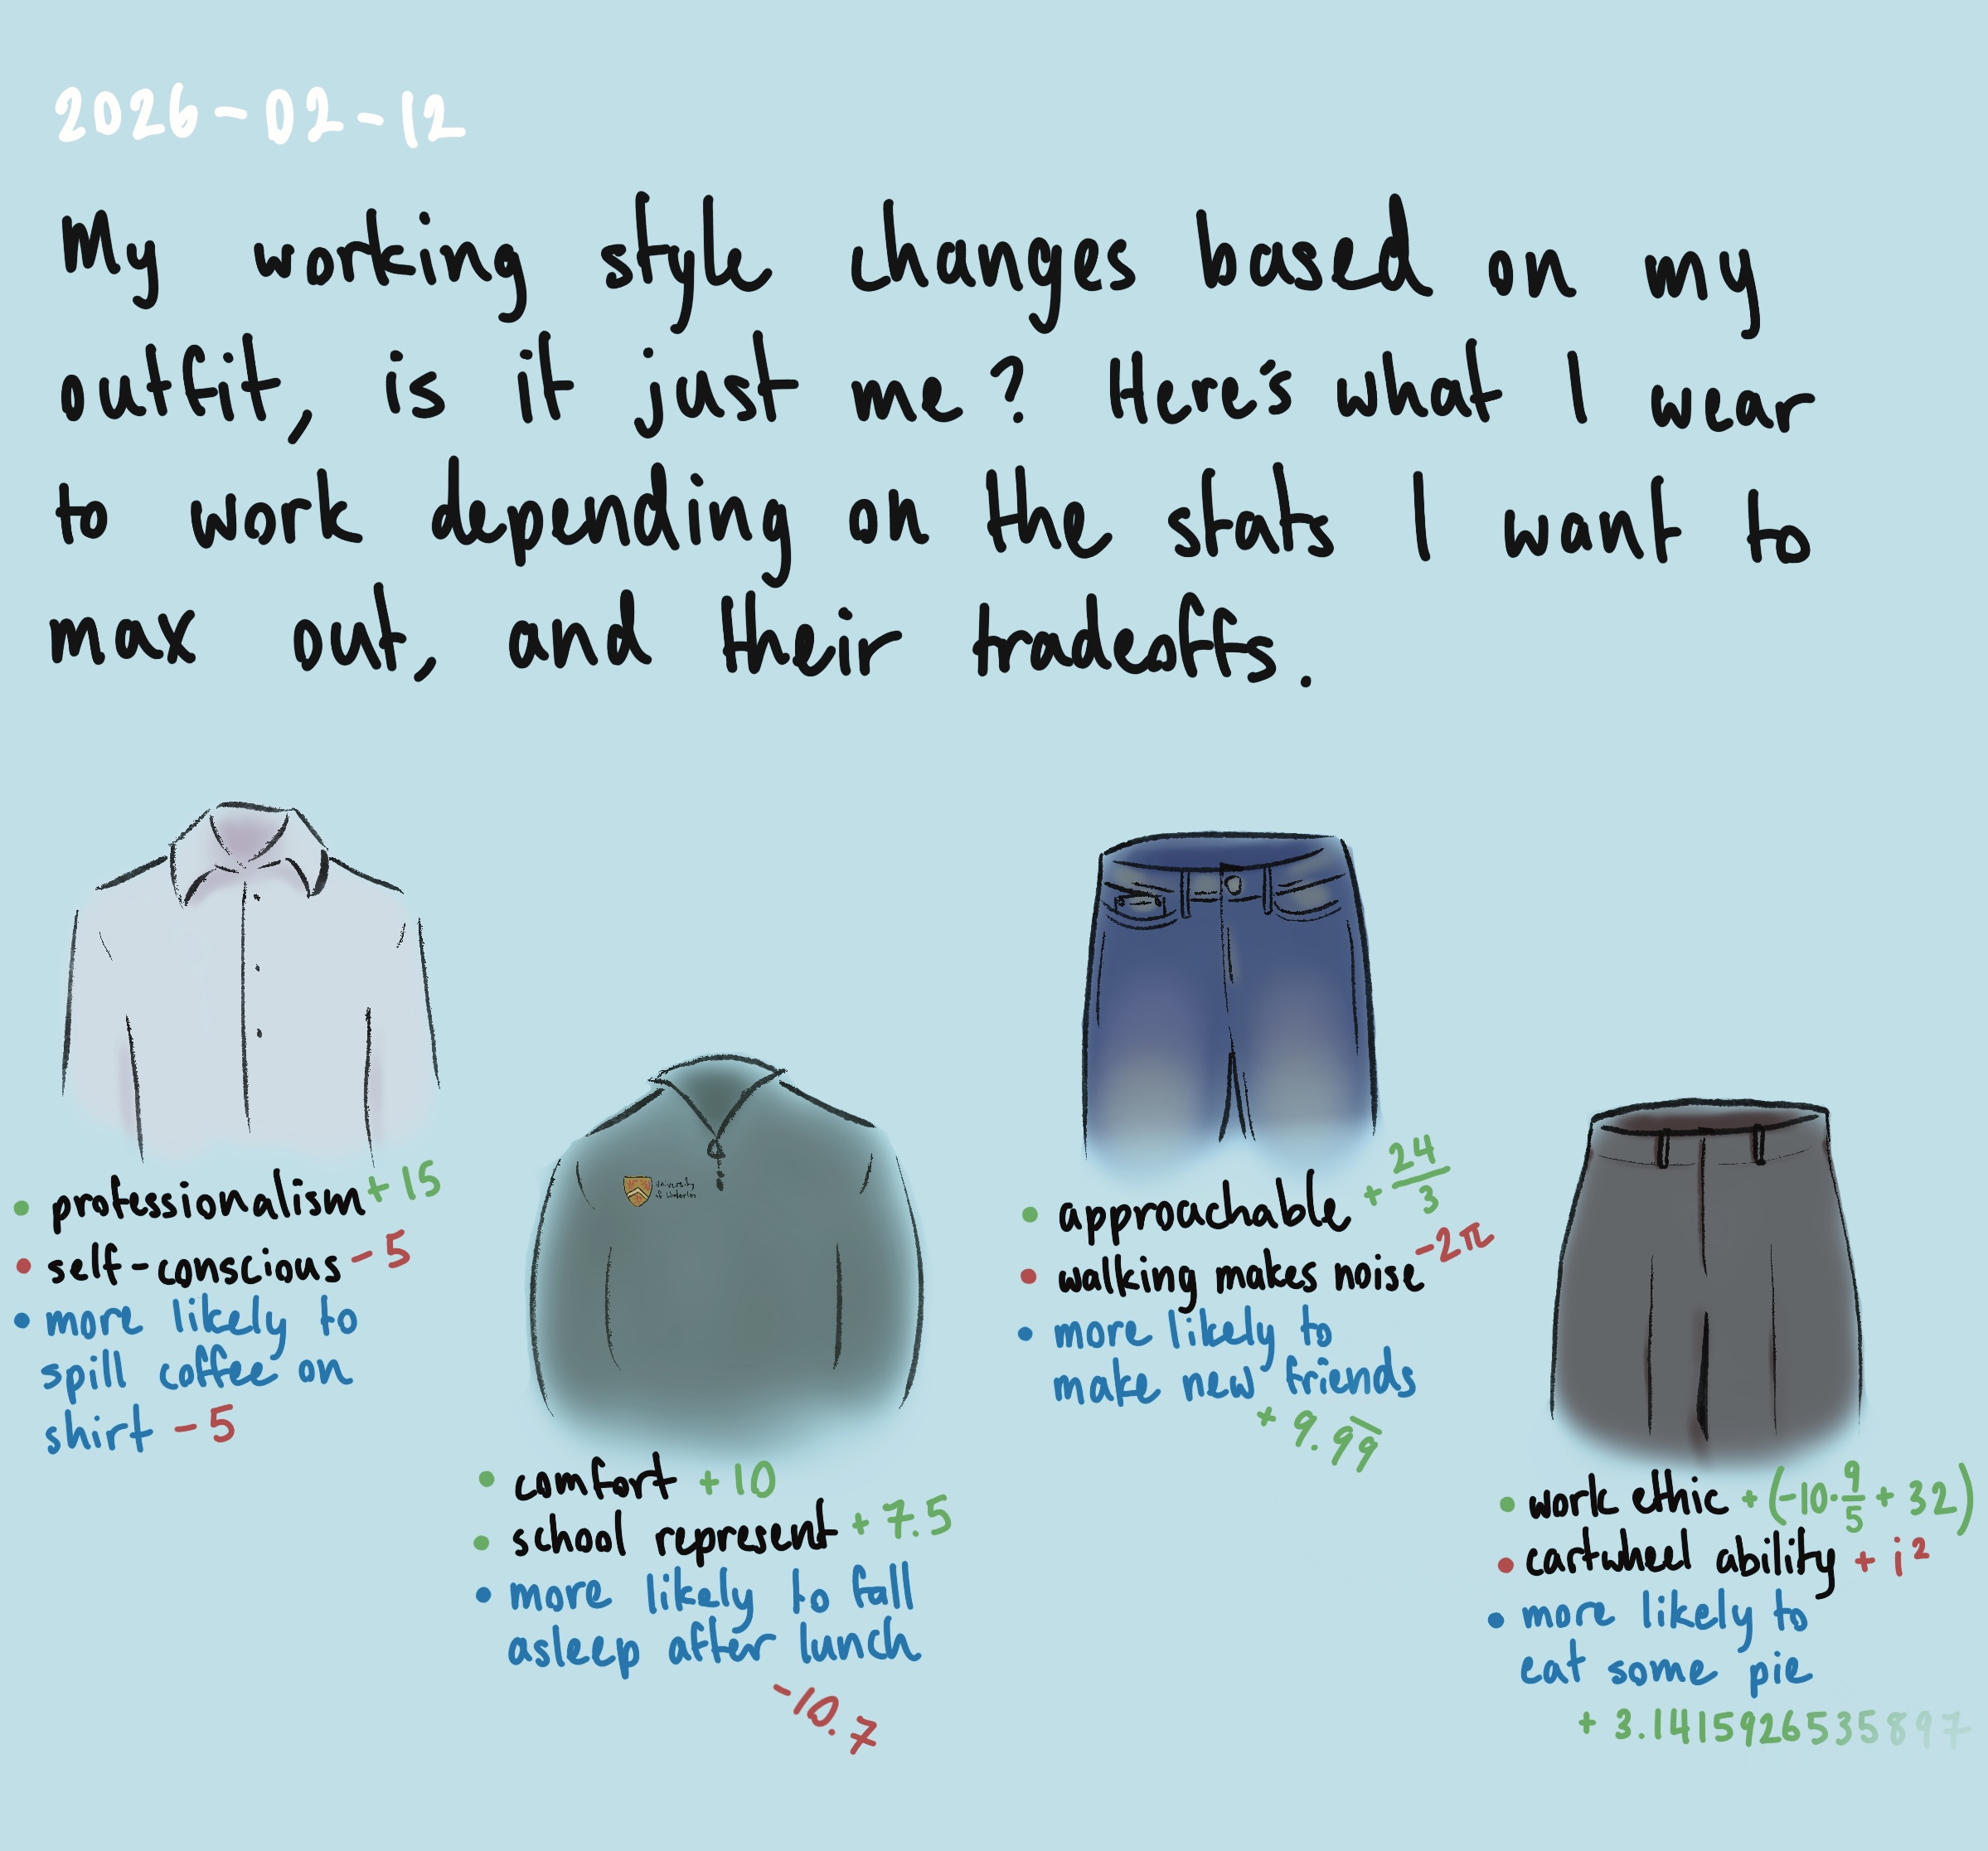 2026-02-12
My working style changes based on my
outfit, is it just me? Here's what I wear
to work depending on the stats I want to
max out, and their tradeoffs.
• professionalism +15
• self-conscious -5
• more likely to
spill coffee on
shirt -5
University
of Waterloo
• comfort +10
• school represent +7.5
• more likely to fall
asleep after lunch
-10.7
• approachable + 24/3
• walking makes noise -2π
• more likely to
make new friends
+ 9.99̅
• work ethic + (-10·9/5 + 32)
• cartwheel ability + i²
• more likely to
eat some pie
+ 3.1415926535897